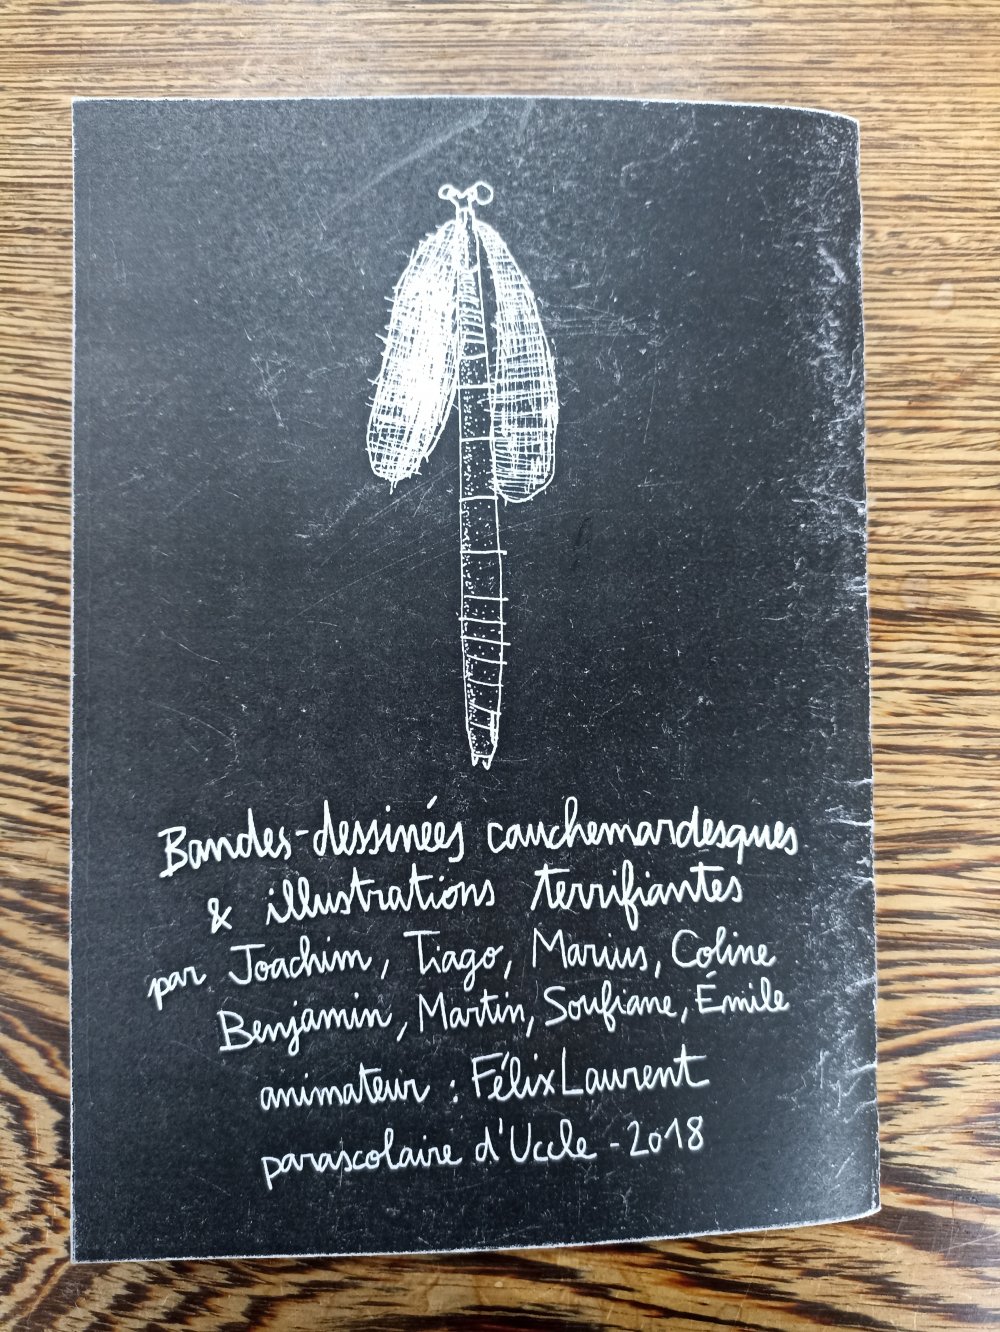 Bandes-dessinées cauchemardesques
& illustrations terrifiantes
par Joachim, Tiago, Marius, Coline
Benjamin, Martin, Soufiane, Émile
animateur : Félix Laurent
parascolaire d'Uccle - 2018